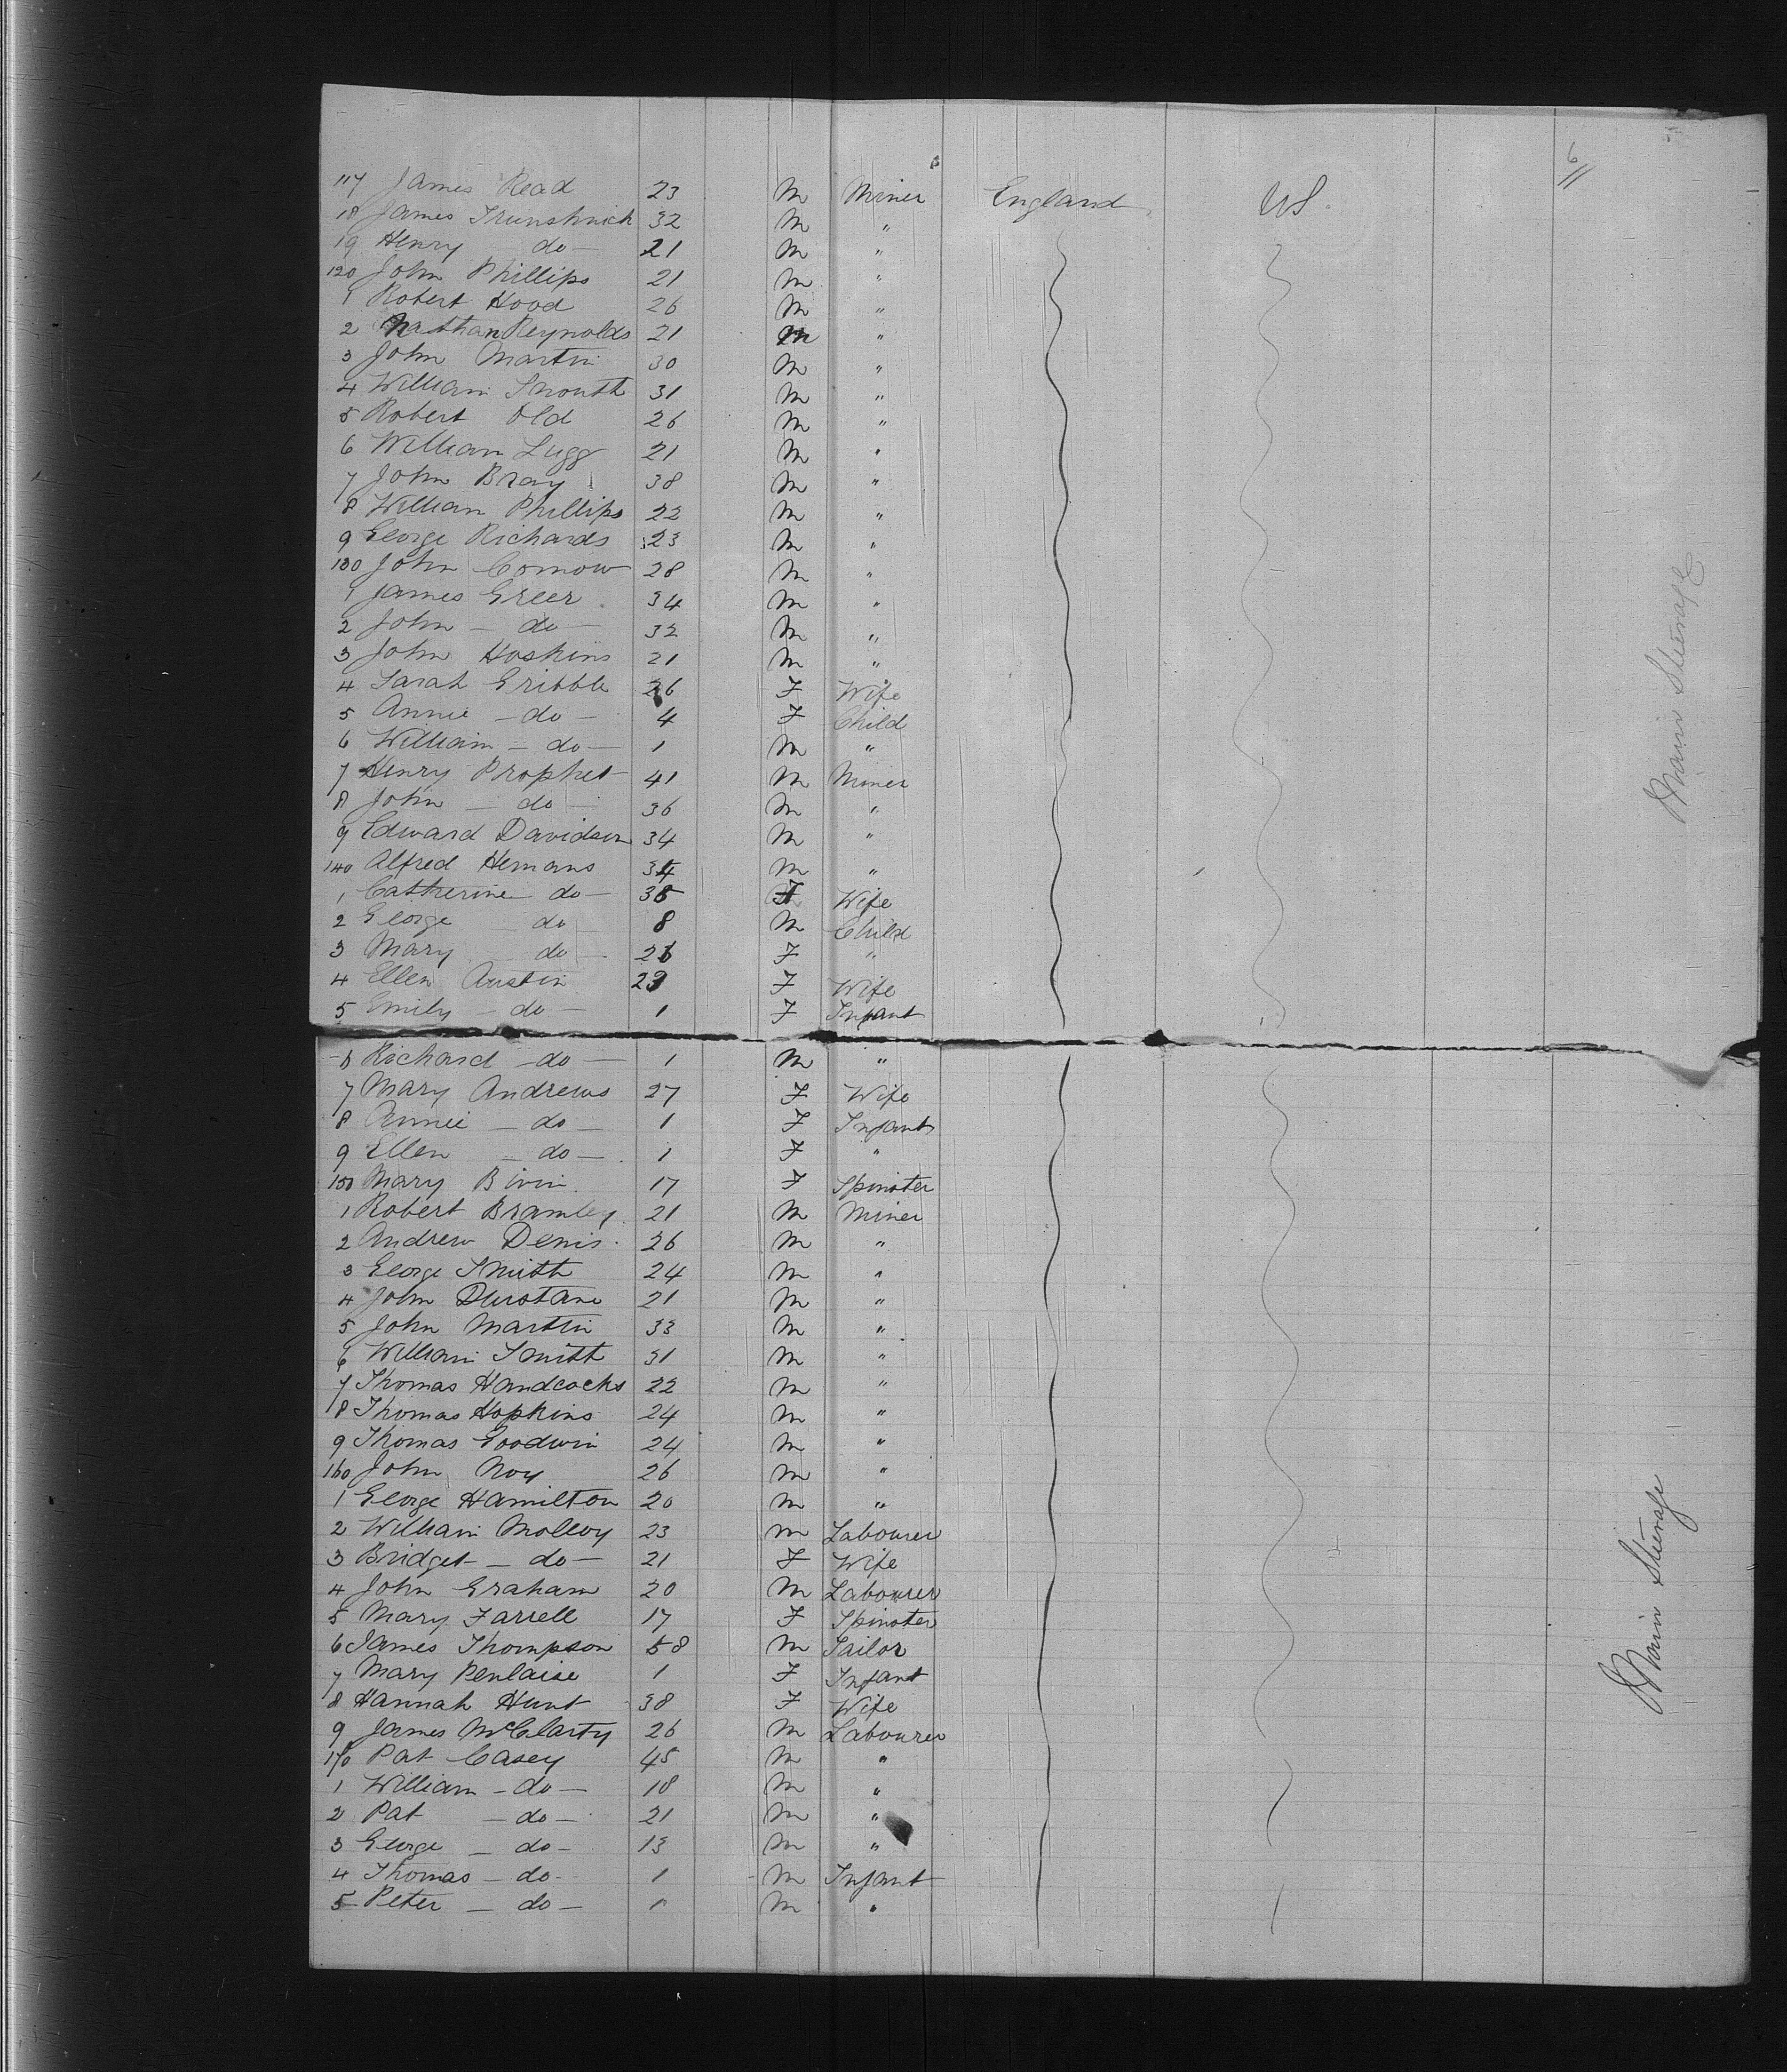 6/11
117 James Read 23 M Miner England US
18 James Trunshnick 32 M "
19 Henry - do - 21 M "
120 John Phillips 21 M "
1 Robert Hood 26 M "
2 Nathan Reynolds 21 M "
3 John Martin 30 M "
4 William Snouth 31 M "
5 Robert Old 26 M "
6 William Lugg 21 M "
7 John Bray 38 M "
8 William Phillips 22 M "
9 George Richards 23 M "
130 John Cornow 28 M "
1 James Greer 34 M "
2 John - do - 32 M "
3 John Hoskins 21 M "
4 Sarah Gribble 26 F Wife
5 Annie - do - 4 F Child
6 William - do - 1 M "
7 Henry Prophet 41 M Miner
8 John - do - 36 M "
9 Edward Davidson 34 M "
140 Alfred Hemans 34 M "
1 Catherine do - 35 F Wife
2 George do 8 M Child
3 Mary do - F "
4 Ellen Austin F Wife
5 Emily - do - 1 F Infant
6 Richard - do - 1 M "
7 Mary Andrews 27 F Wife
8 Annie - do - 1 F Infant
9 Ellen - do - 1 F "
150 Mary Bivin 17 F Spinster
1 Robert Bramley 21 M Miner
2 Andrew Denis 26 M "
3 George Smith 24 M "
4 John Durstane 21 M "
5 John Martin 33 M "
6 William Smith 31 M "
7 Thomas Handcocks 22 M "
8 Thomas Hopkins 24 M "
9 Thomas Goodwin 24 M "
160 John Noy 26 M "
1 George Hamilton 20 M "
2 William Molloy 23 M Labourer
3 Bridget - do - 21 F Wife
4 John Graham 20 M Labourer
5 Mary Farrell 17 F Spinster
6 James Thompson 58 M Tailor
7 Mary Penlaise 1 F Infant
8 Hannah Hunt 38 F Wife
9 James McClarty 26 M Labourer
170 Pat Casey 45 M "
1 William - do - 18 M "
2 Pat - do - 21 M "
3 George - do - 13 M "
4 Thomas - do - 1 M Infant
5 Peter - do - 1 M "
Main Steerage
Main Steerage